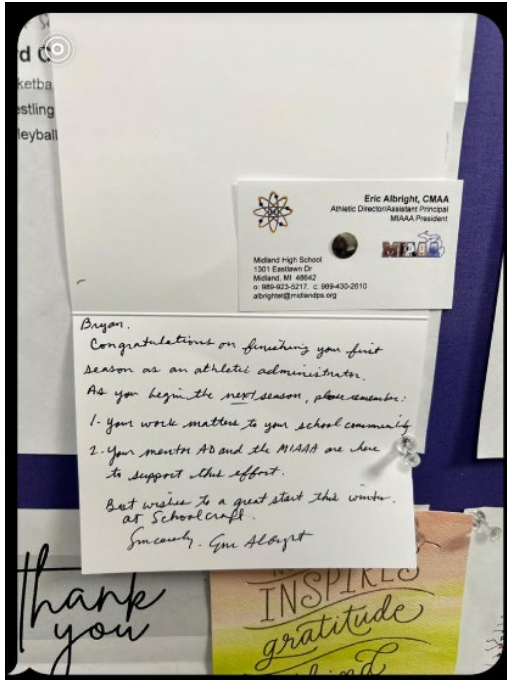 rd C
ketba
estling
leyball
Eric Albright, CMAA
Athletic Director/Assistant Principal
MIAAA President
MIAAA
Midland High School
1301 Eastlawn Dr
Midland, MI 48642
o: 989-923-5217. c: 989-430-2610
albrightel@midlandps.org
Bryan,
Congratulations on finishing your first
season as an athletic administrator.
As you begin the next season, please remember:
1. your work matters to your school community
2. Your mentor AD and the MIAAA are here
to support this effort.
Best wishes to a great start this winter
at Schoolcraft.
Sincerely, Eric Albright
thank
you
INSPIRES
gratitude